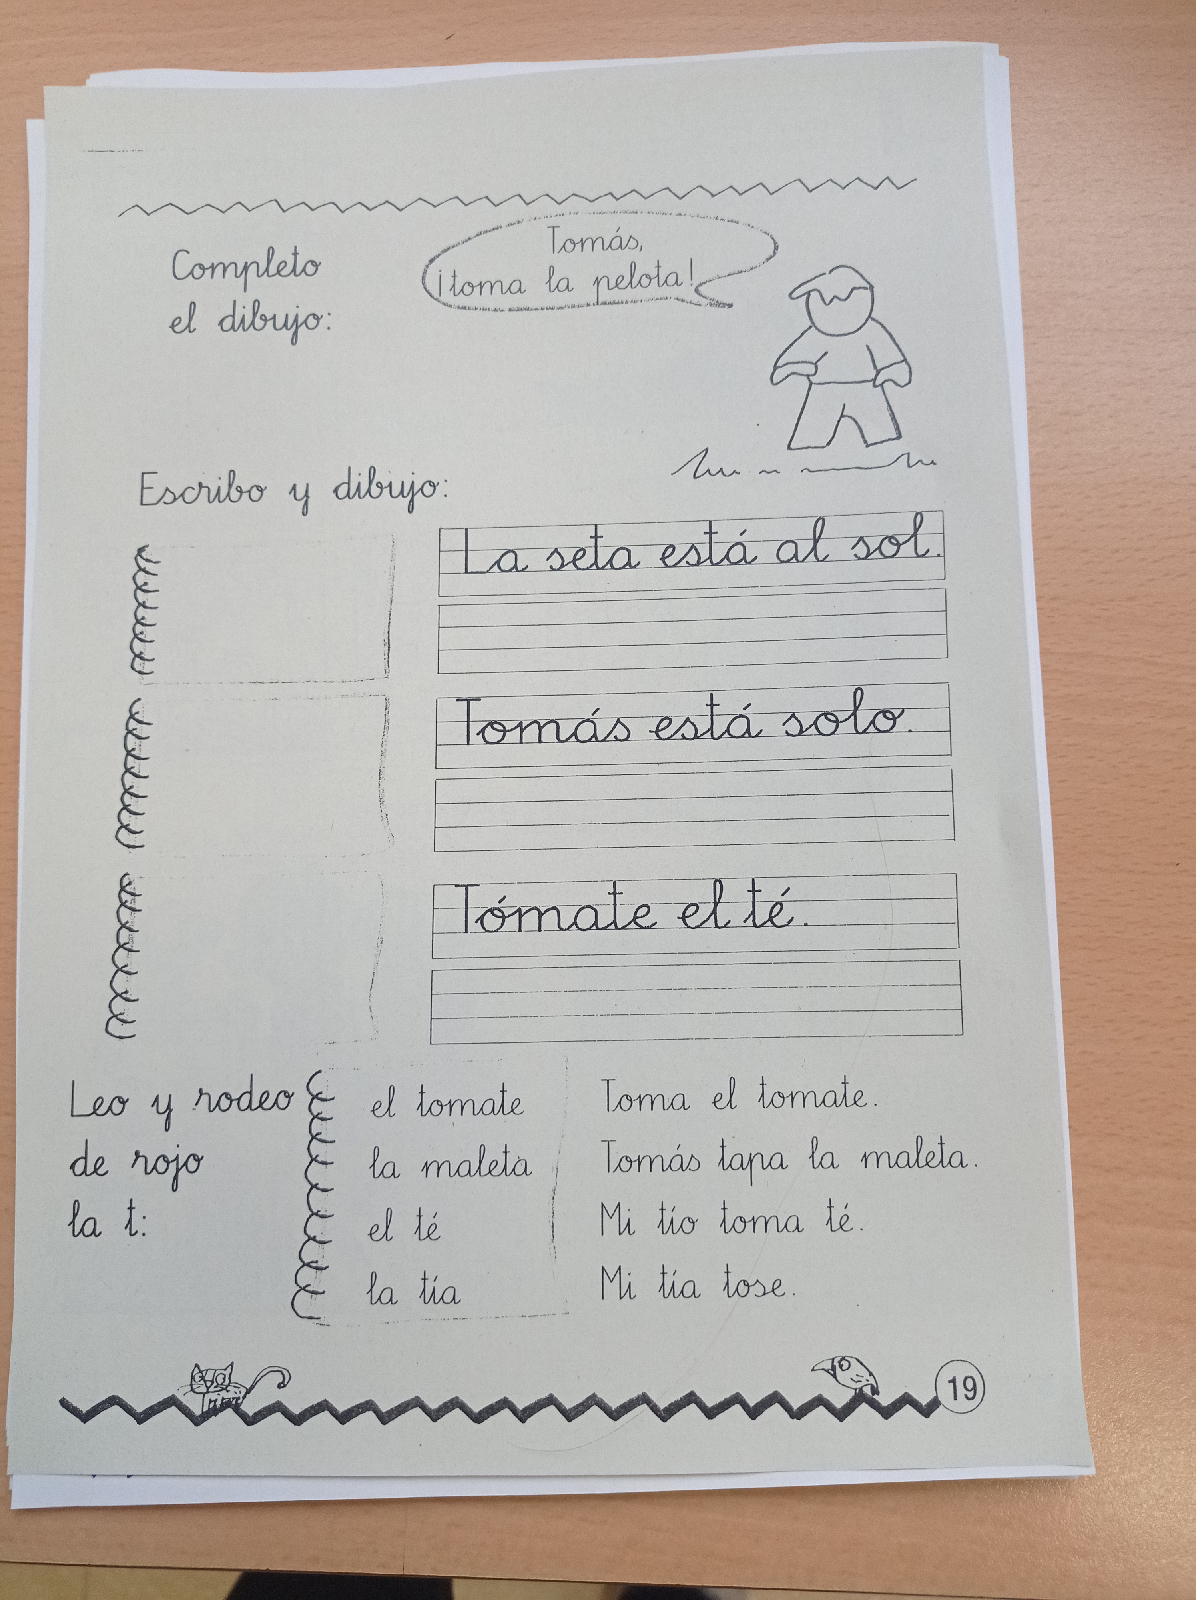 Completo
el dibujo:
Tomás,
¡toma la pelota!
Escribo y dibujo:
La seta está al sol.
Tomás está solo.
Tómate el té.
Leo y rodeo
de rojo
la t:
el tomate
la maleta
el té
la tía
Toma el tomate.
Tomás tapa la maleta.
Mi tío toma té.
Mi tía tose.
19